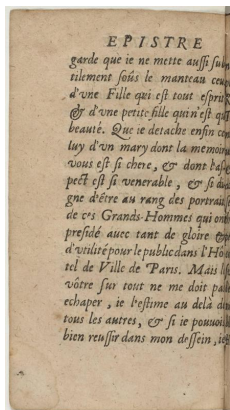 EPISTRE
garde que ie ne mette aussi sub
tilement soûs le manteau ceux
d'vne Fille qui est tout esprit
& d'vne petite fille qui n'est que
beauté. Que ie detache enfin ce
luy d'vn mary dont la memoire
vous est si chere, & dont l'as
pect est si venerable, & si di
gne d'être au rang des portraits
de ces Grands-Hommes qui ont
presidé auec tant de gloire &
d'vtilité pour le public dans l'Hô
tel de Ville de Paris. Mais le
vôtre sur tout ne me doit pas
echaper, ie l'estime au delà de
tous les autres, & si ie pouuois
bien reussir dans mon dessein, ie